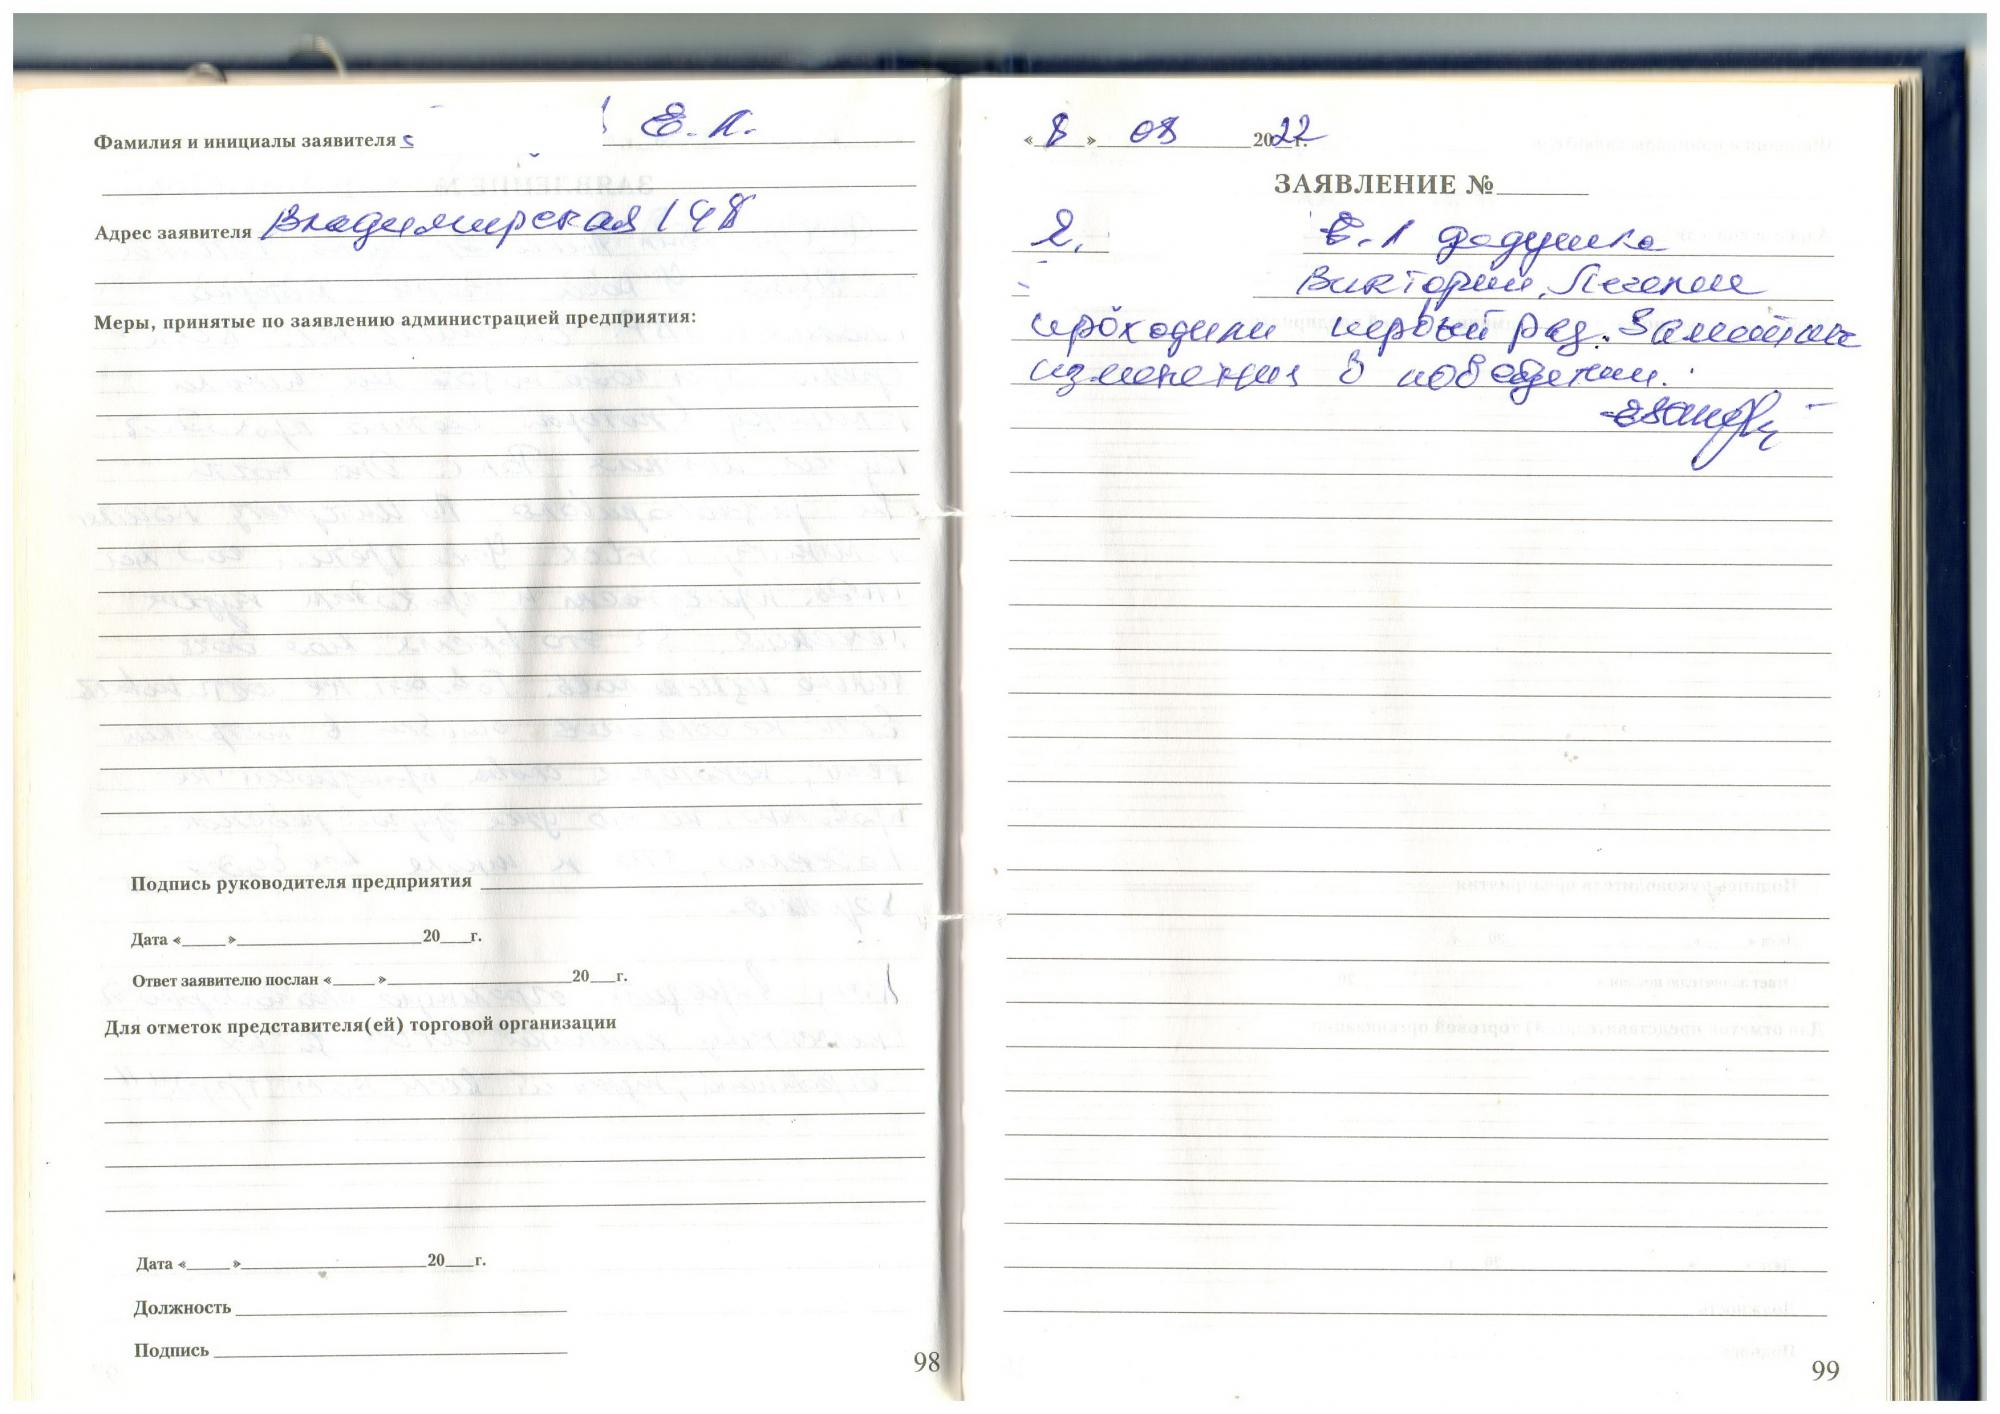 Фамилия и инициалы заявителя Е. Л.
Адрес заявителя Владимирская 148
Меры, принятые по заявлению администрацией предприятия:
Подпись руководителя предприятия
Дата «____»____________20___г.
Ответ заявителю послан «____»____________20___г.
Для отметок представителя(ей) торговой организации
Дата «____»____________20___г.
Должность
Подпись
98
«8» 08 2022г.
ЗАЯВЛЕНИЕ №
Я, Е.Л дедушка
Виктории. Лечение
проходили первый раз. Заметные
изменения в поведении.
99